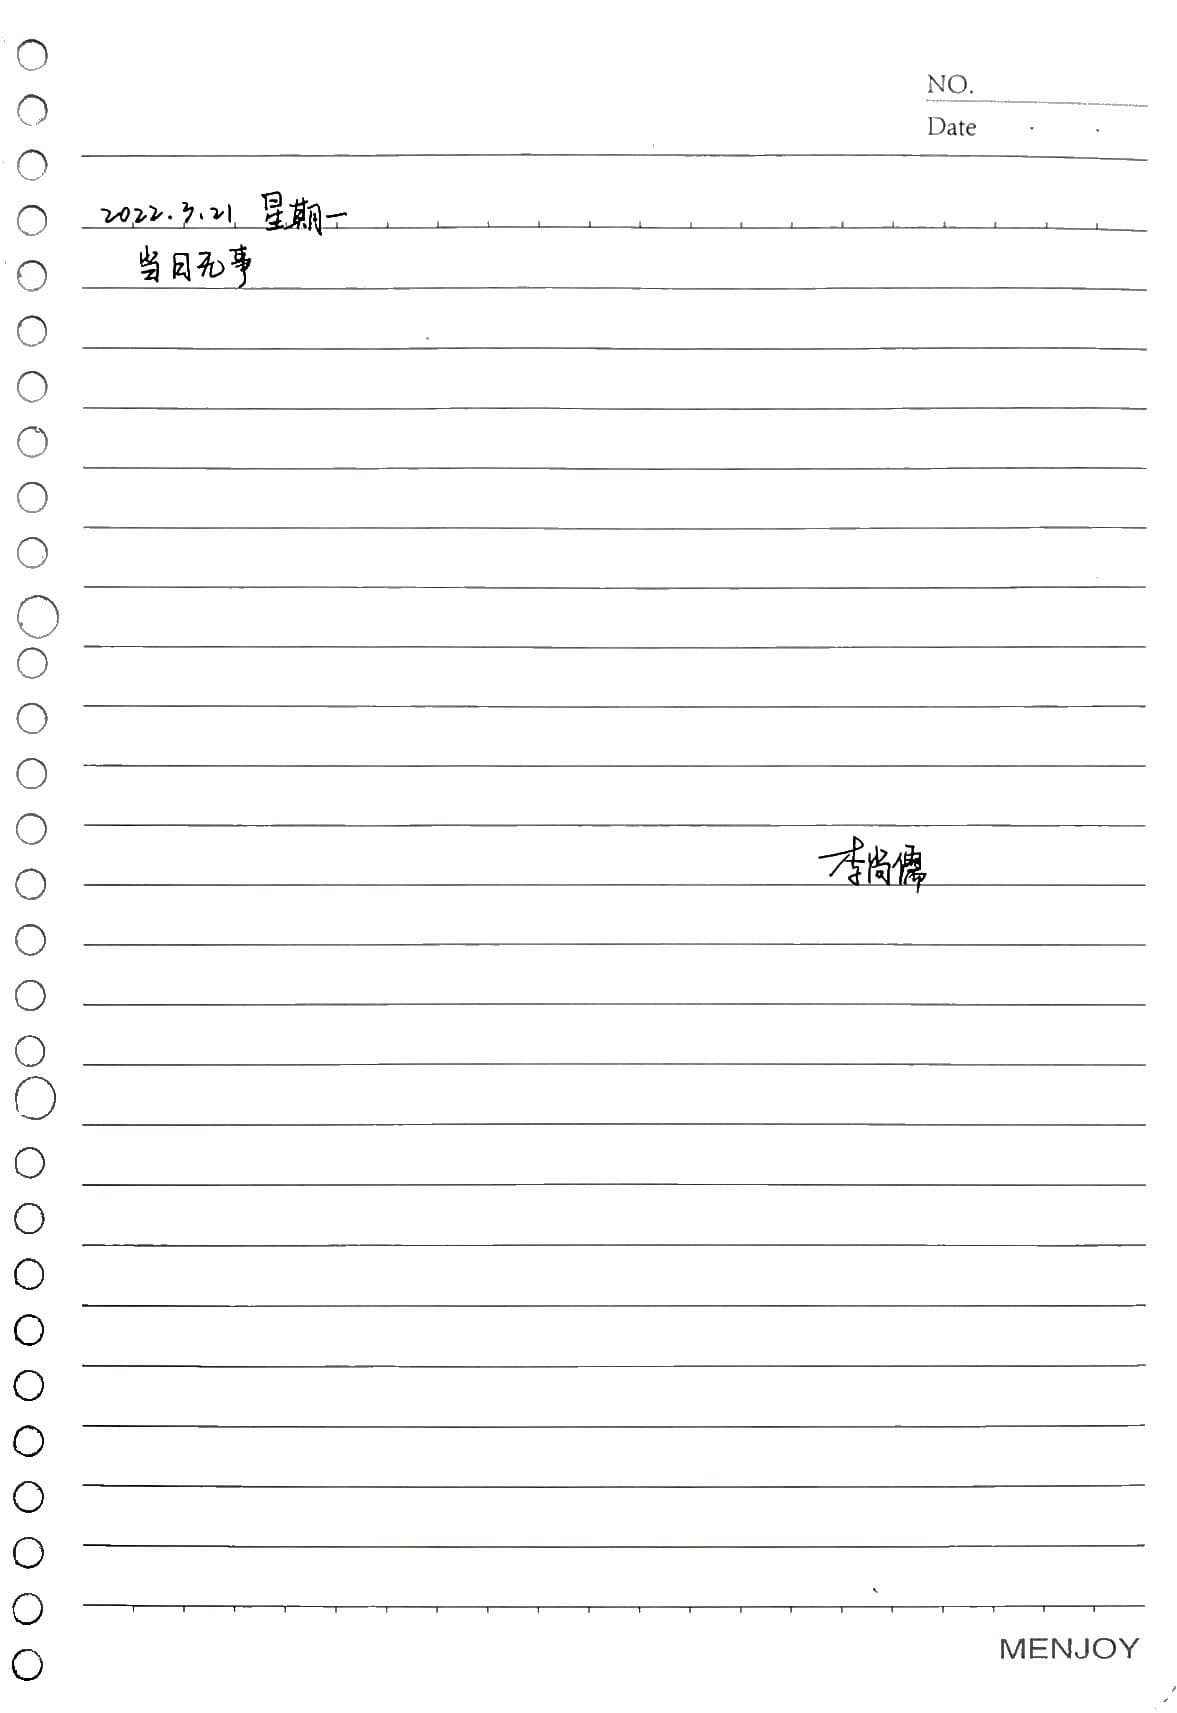 NO.
Date
2022.3.21 星期一
当日无事
李尚儒
MENJOY